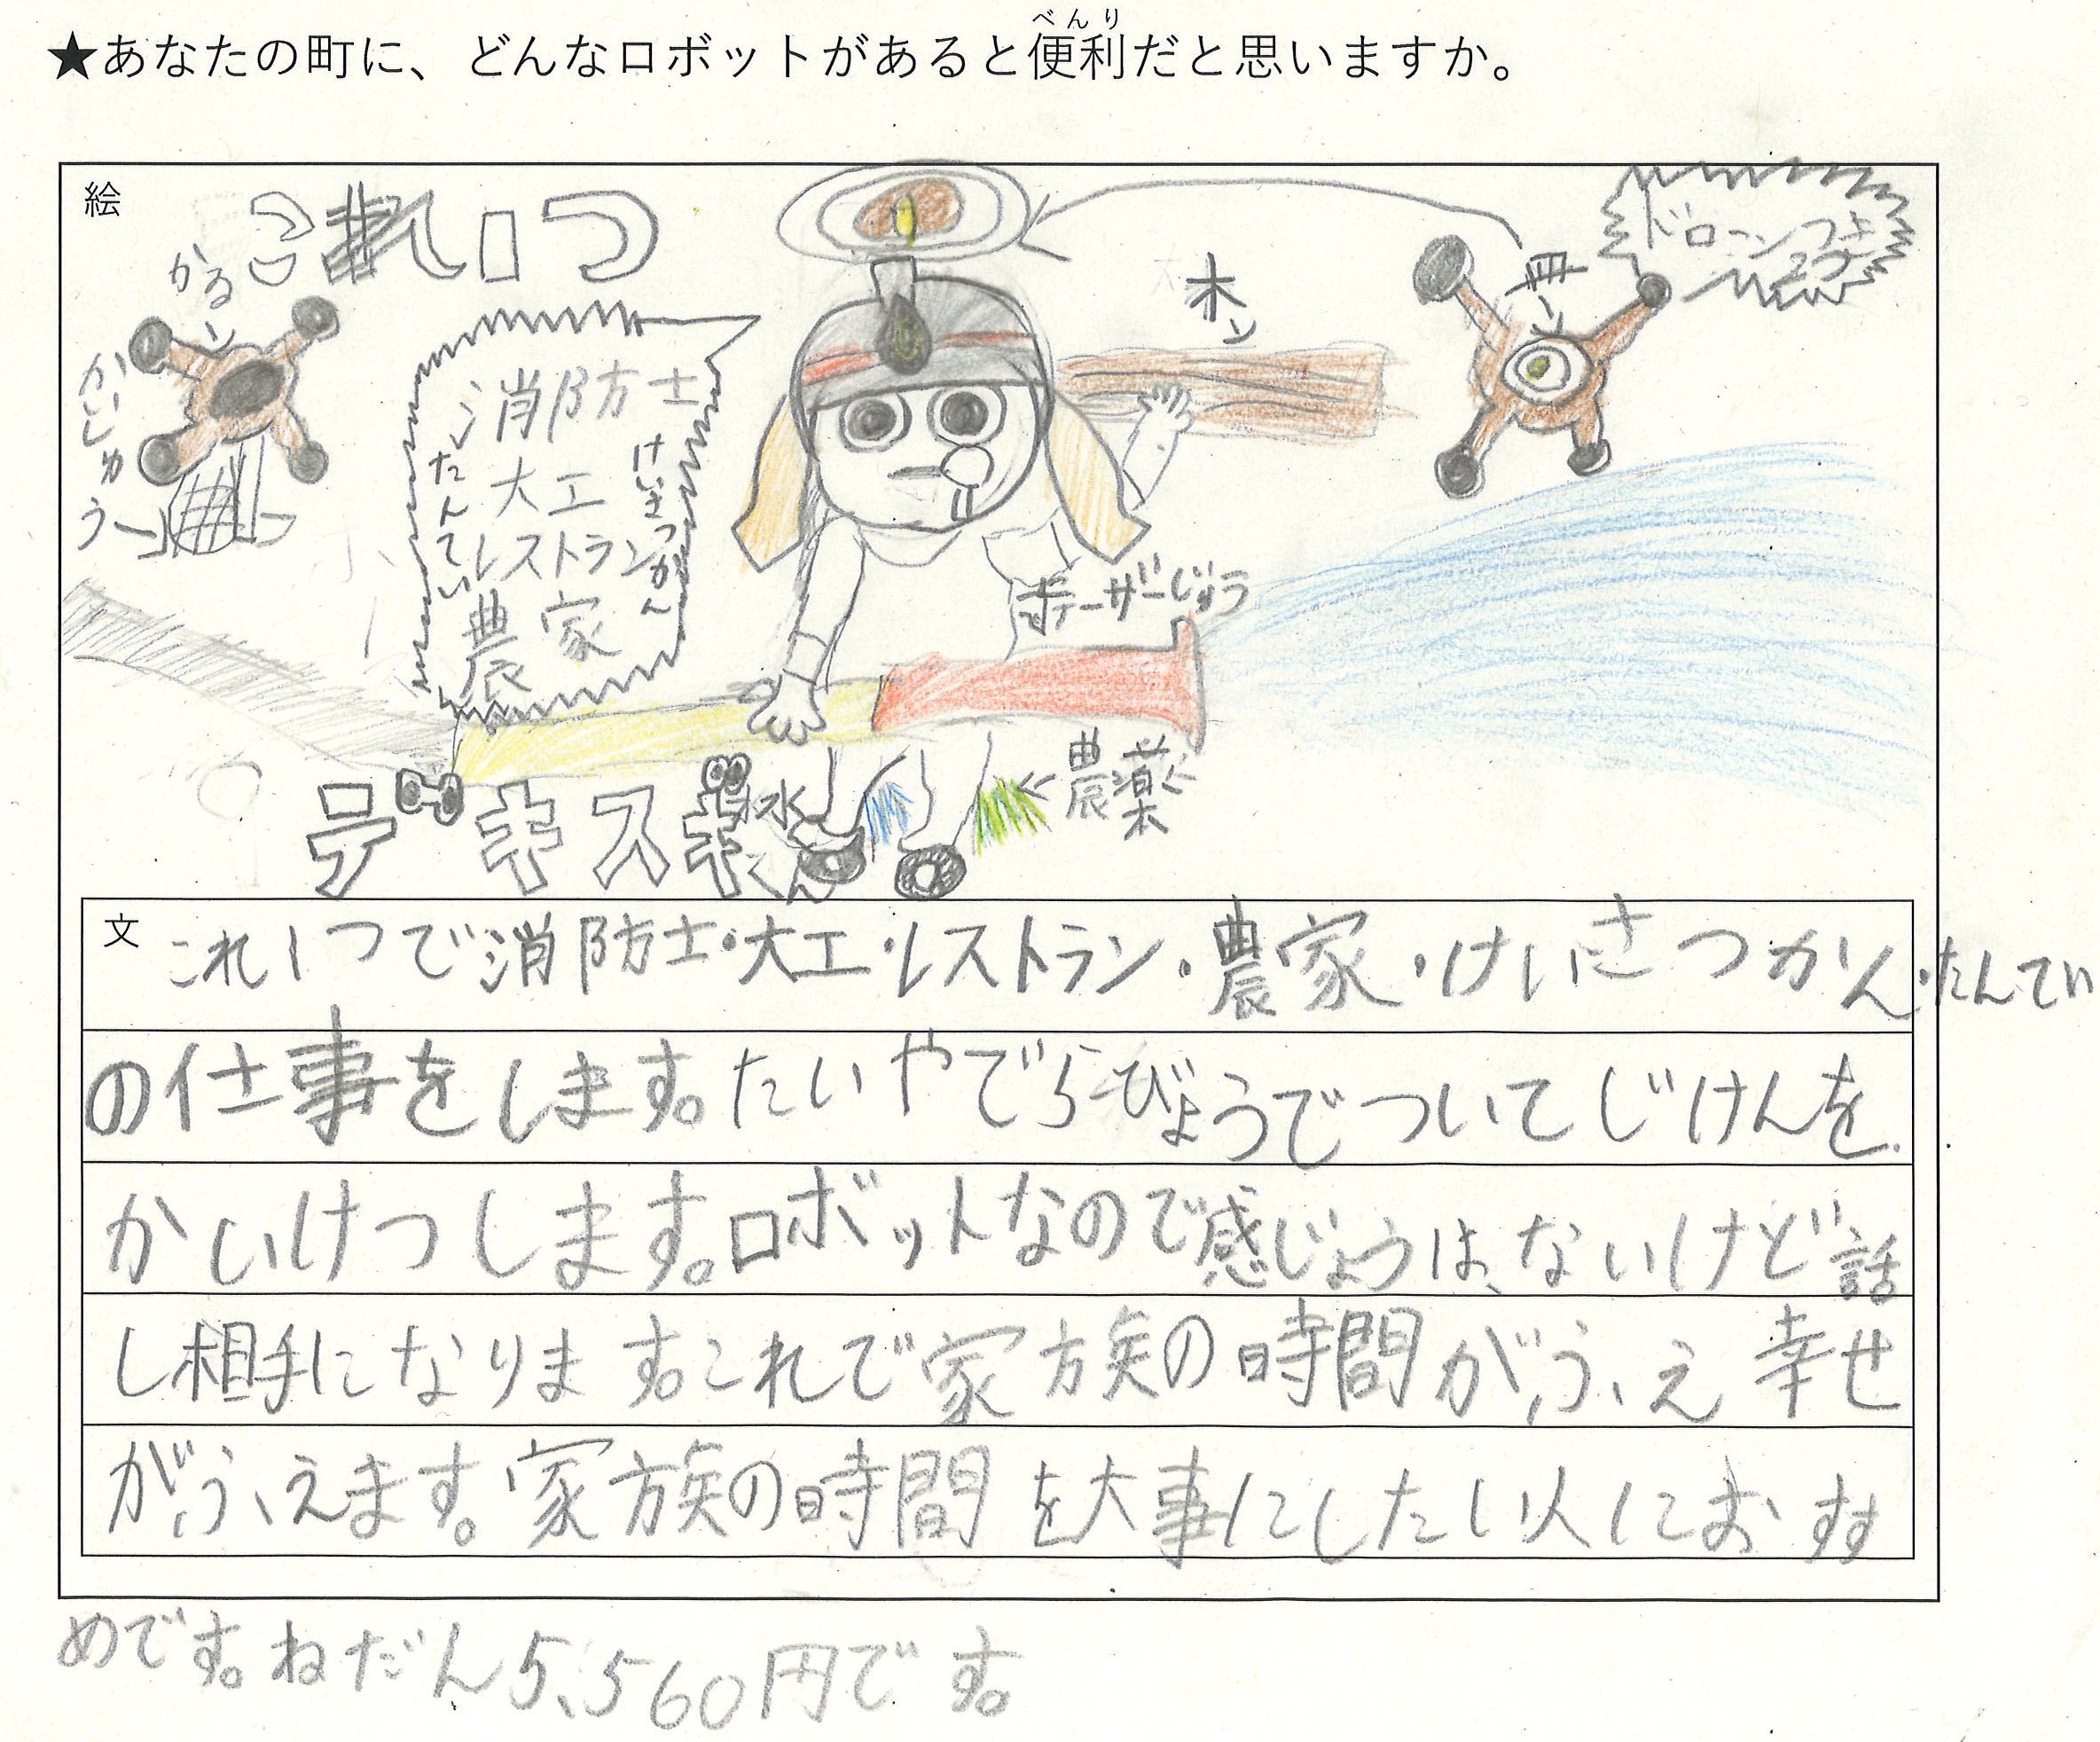 べんり
★あなたの町に、どんなロボットがあると便利だと思いますか。
絵
これ1つ
ドローンつよ
木
かいしゅう
消防士
大工
レストラン
農家
たんてい
けいさつかん
じゅう
デキスギくん
水
農薬
文
これ1つで消防士・大工・レストラン・農家・けいさつかん・たんてい
の仕事をします。たいやで5びょうでついてじけんを
かいけつします。ロボットなので感じょうは、ないけど話
し相手になります。これで家族の時間がふえ幸せ
がふえます。家族の時間を大事にしたい人におすす
めです。ねだん5,560円です。